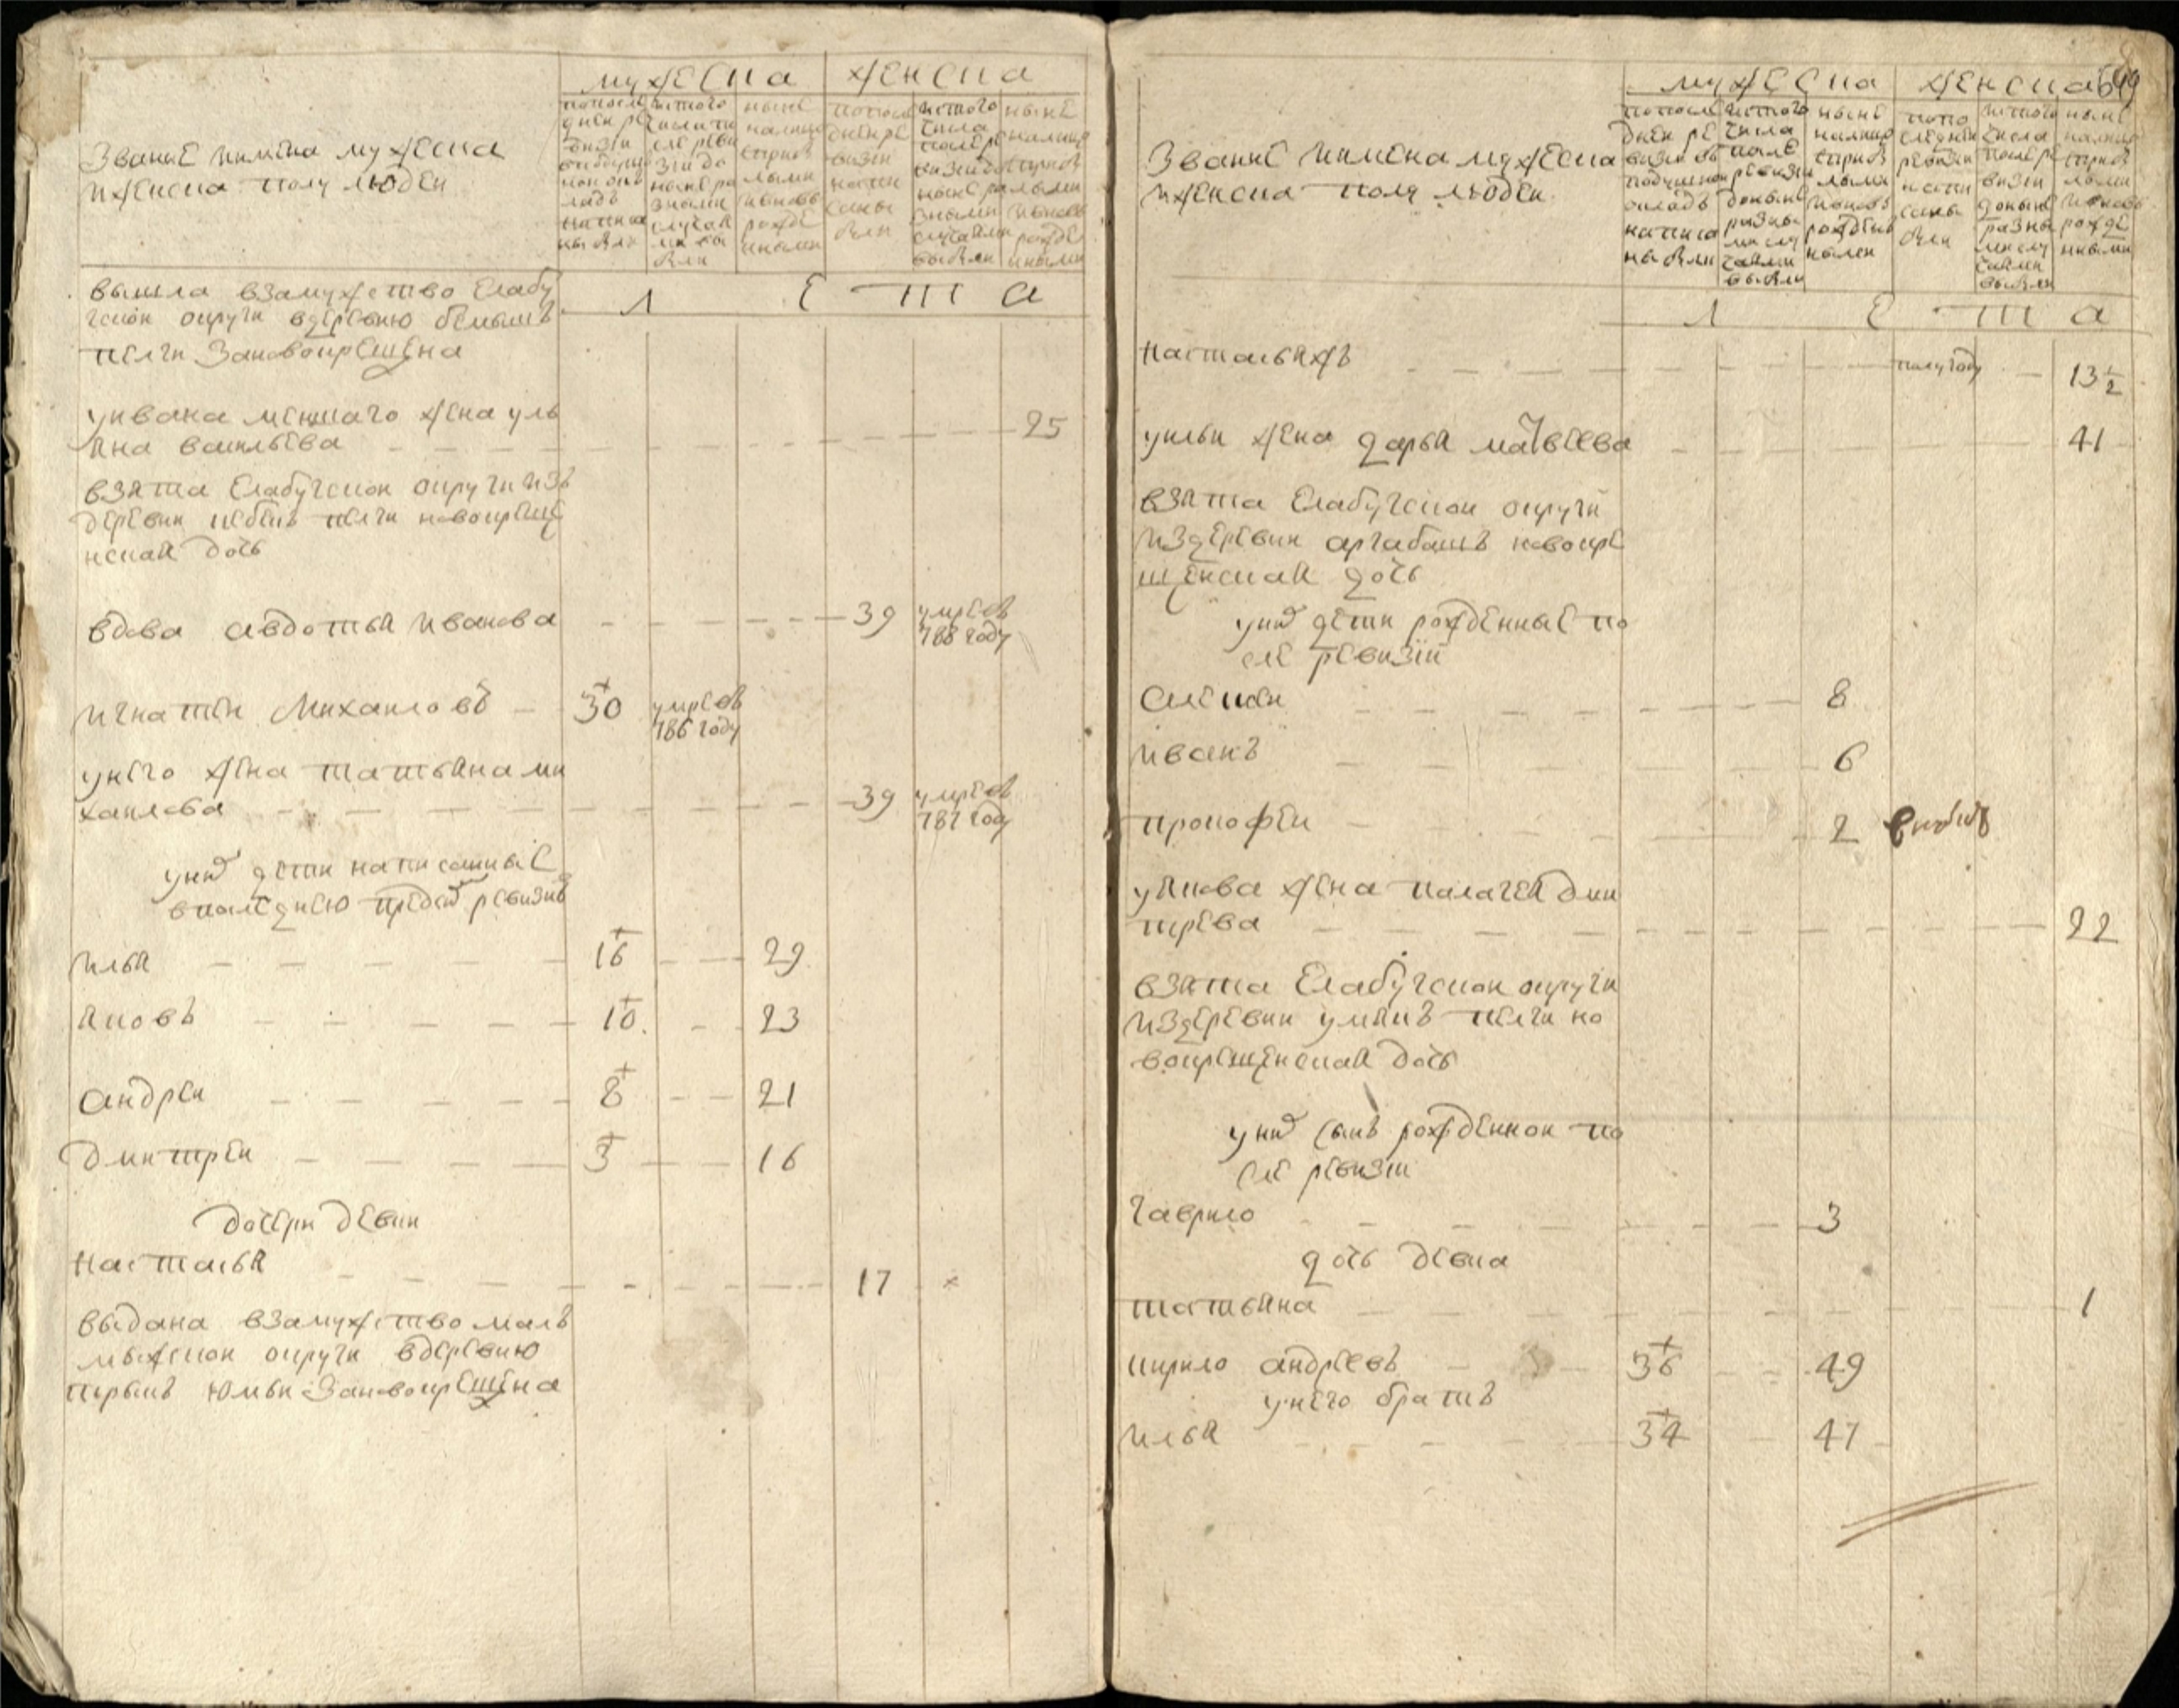 мужеска
женска
Звание имена мужеска
и женска полу людей
по после
дней ре
визии
в подуш
ной ок
ладъ
написа
ны были
ис того
числа по
сле реви
зии до
ныне ра
зными
случая
ми вы
были
ныне
налицо
с прибы
лыми
и вновь
рожде
ными
по после
дней ре
визии
напи
саны
были
ис того
числа
после ре
визии до
ныне ра
зными
случаями
выбыли
ныне
налицо
с прибы
лыми
и вновь
рожде
нными
Л Е Т А
вышла взамужство Елабу
гской округи вдеревню
пелги Зановокрещена
уивана меншаго жена уль
яна васильева 25
взята Елабугской округи изъ
деревни пелги новокреще
нская дочь
вдова авдотья иванова 39 умре въ
788 году
игнатей Михаиловъ 30 умре въ
786 году
унего жена татьяна ми
хаилова 39 умре въ
787 году
уних дети написанные
в последнею пред сим ревизию
илья 16 29
яковъ 10 23
андреи 8 21
дмитреи 3 16
дочери девки
настасья 17
выдана взамужство мал
мыжскои округи вдеревню
юмьи Зановокрещена
мужеска
женска
649
Звание имена мужеска
и женска полу людей
по после
дней ре
визии въ
подушной
окладъ
написа
ны были
ис того
числа
после
ревизии
доныне
разны
ми слу
чаями
выбыли
ныне
налицо
с прибы
лыми
и вновь
рожден
ными
по по
следней
ревизии
напи
саны
были
ис того
числа
после ре
визии
доныне
разны
ми слу
чаями
выбыли
ныне
налицо
с прибы
лыми
и вновь
рожде
нными
Л Е Т А
настасьяжъ полугоду 13 1/2
уильи жена дарья матвеева 41
взята Елабугскои округи
издеревни аргабашъ новокре
щенская дочь
уних дети рожденные по
сле ревизии
алексеи 8
иванъ 6
прокофеи 2
уякова жена палагея дми
трева 22
взята Елабугскои округи
издеревни умякъ пелги но
вокрещенская дочь
уних сынъ рожденнои по
сле ревизии
гаврило 3
дочь девка
татьяна 1
кирило андреевъ 36 49
унего братъ
илья 34 47